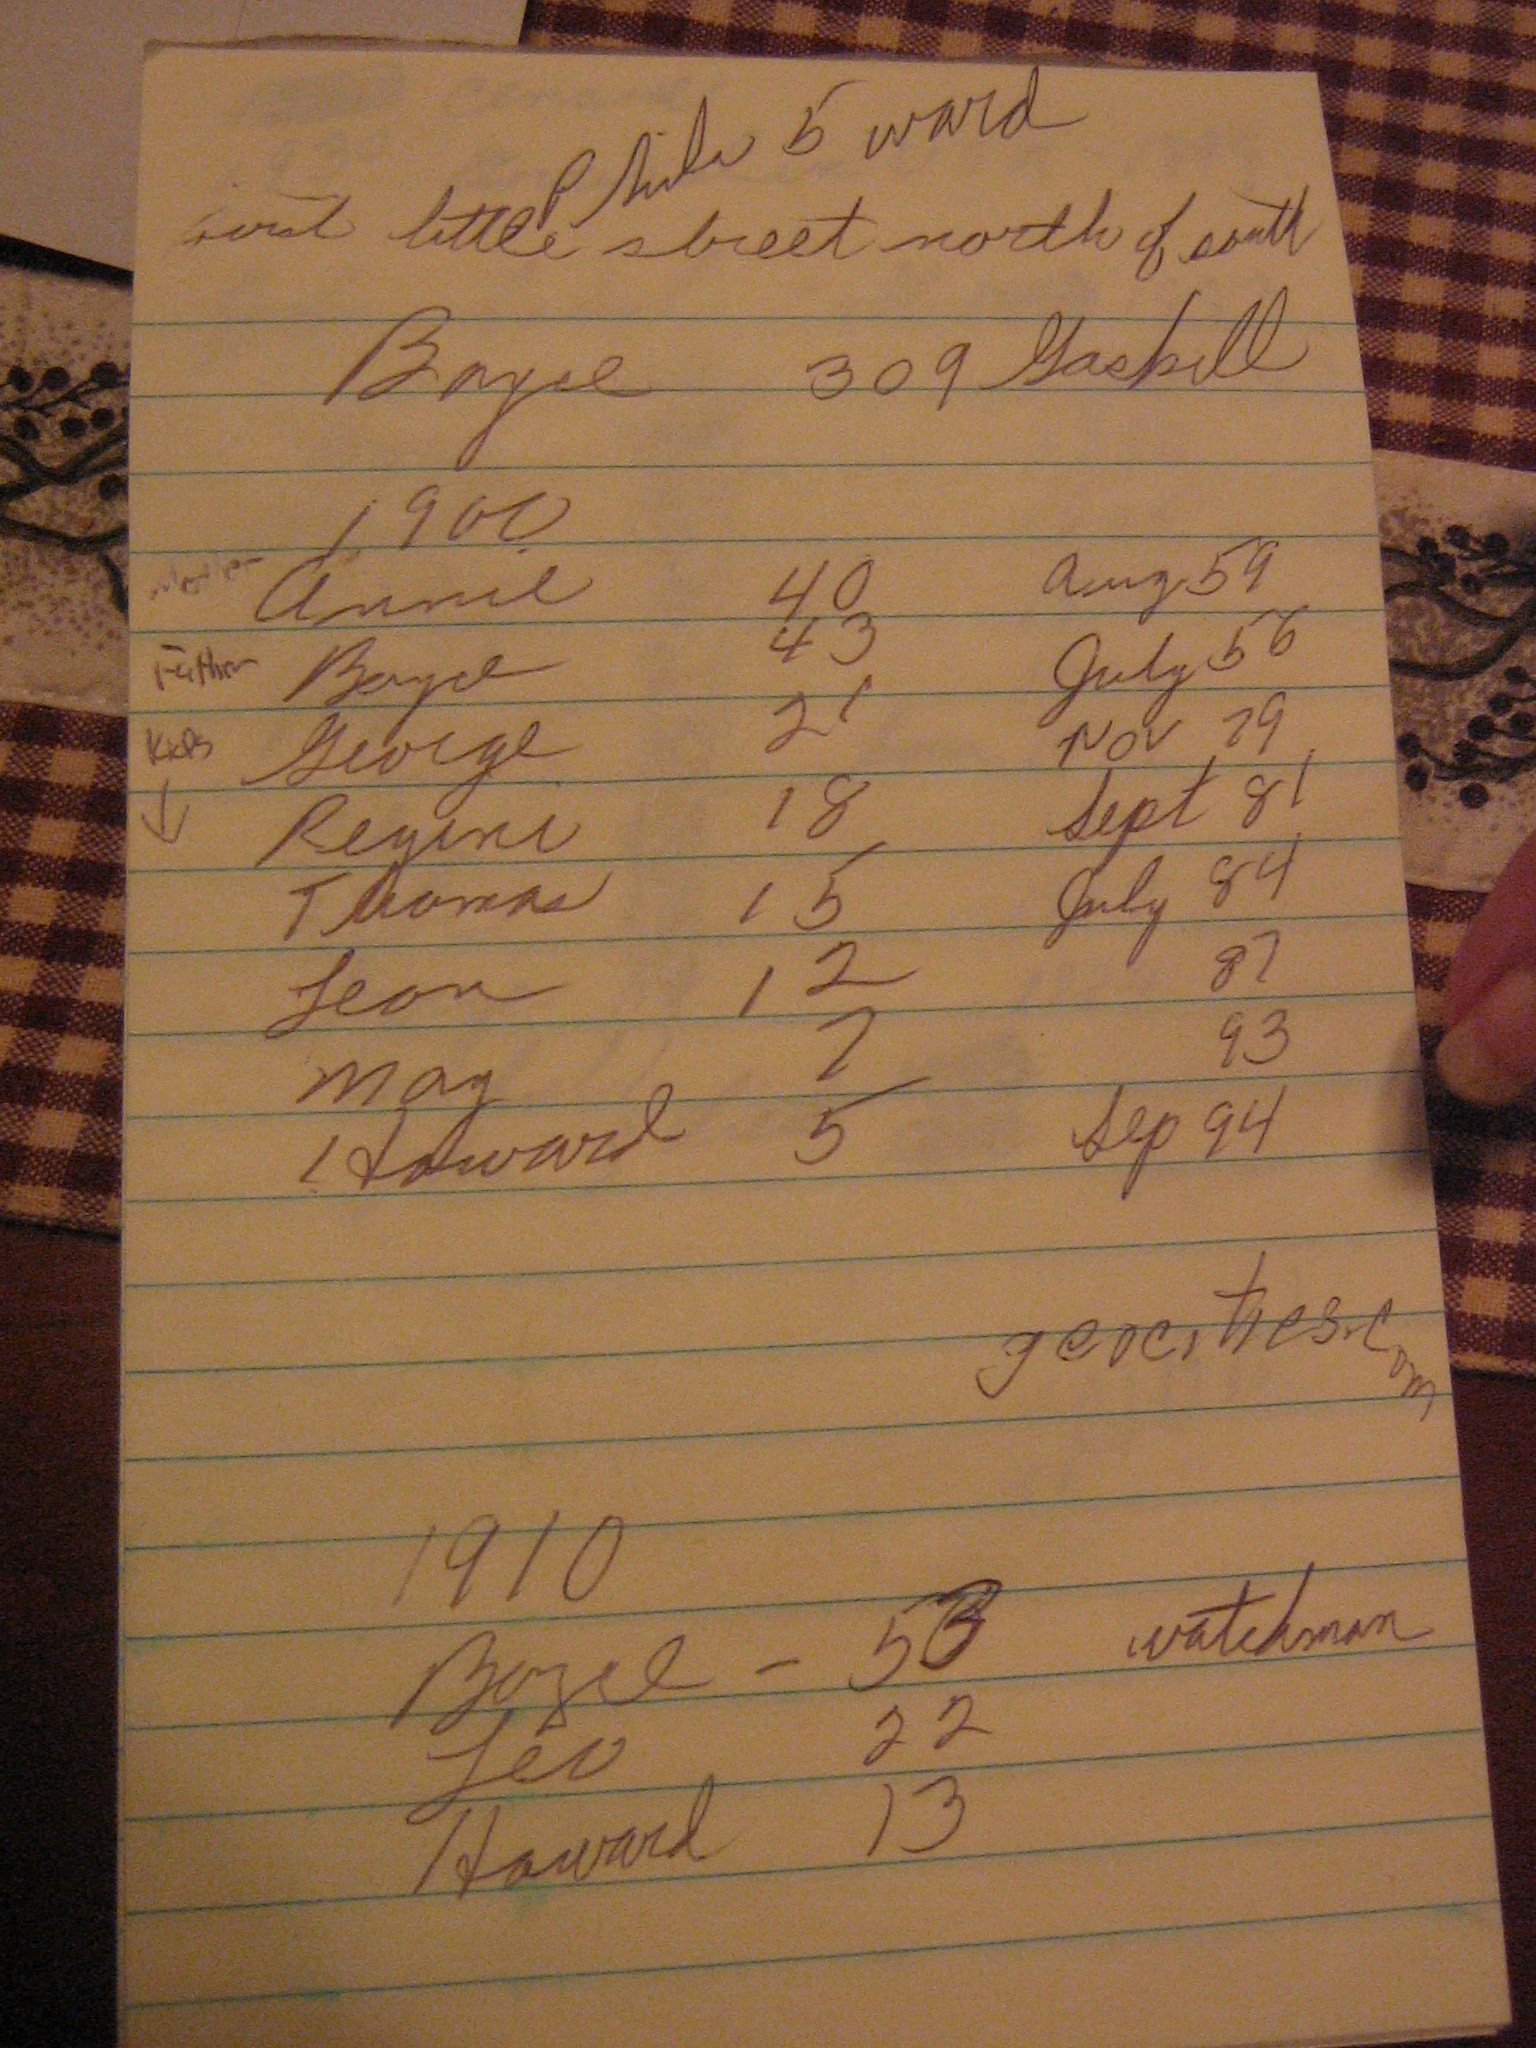 Phila 5 ward
first little street north of south
Boyce 309 Gaskill
1900
mother Annie 40 Aug 59
Father Boyce 43 July 56
Kids George 21 Nov 79
Regini 18 Sept 81
Thomas 15 July 84
Leon 12 87
May 7 93
Howard 5 Sep 94
geocities.com
1910
Boyce - 53 watchman
Leo 22
Howard 13